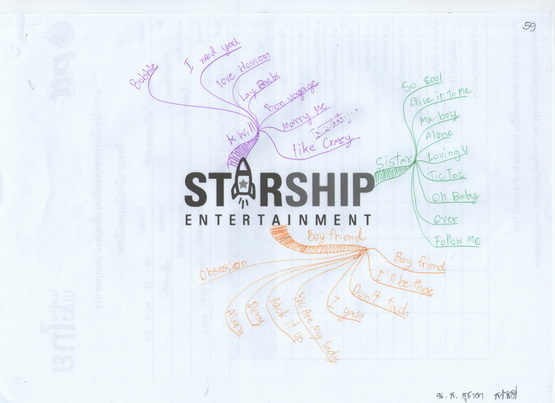 59
Bubble
I need you
love blossom
Lay Back
Bon voyage
Marry Me
like Crazy
K.Will
So cool
Give it To Me
Ma boy
Alone
Loving U
Tic Toc
Oh Baby
Over
Follow Me
Sistar
STARSHIP
ENTERTAINMENT
Boy friend
Boy friend
I'll be there
Don't touch
I yah
You Are My Lady
Back it up
Obsession
น.ส.